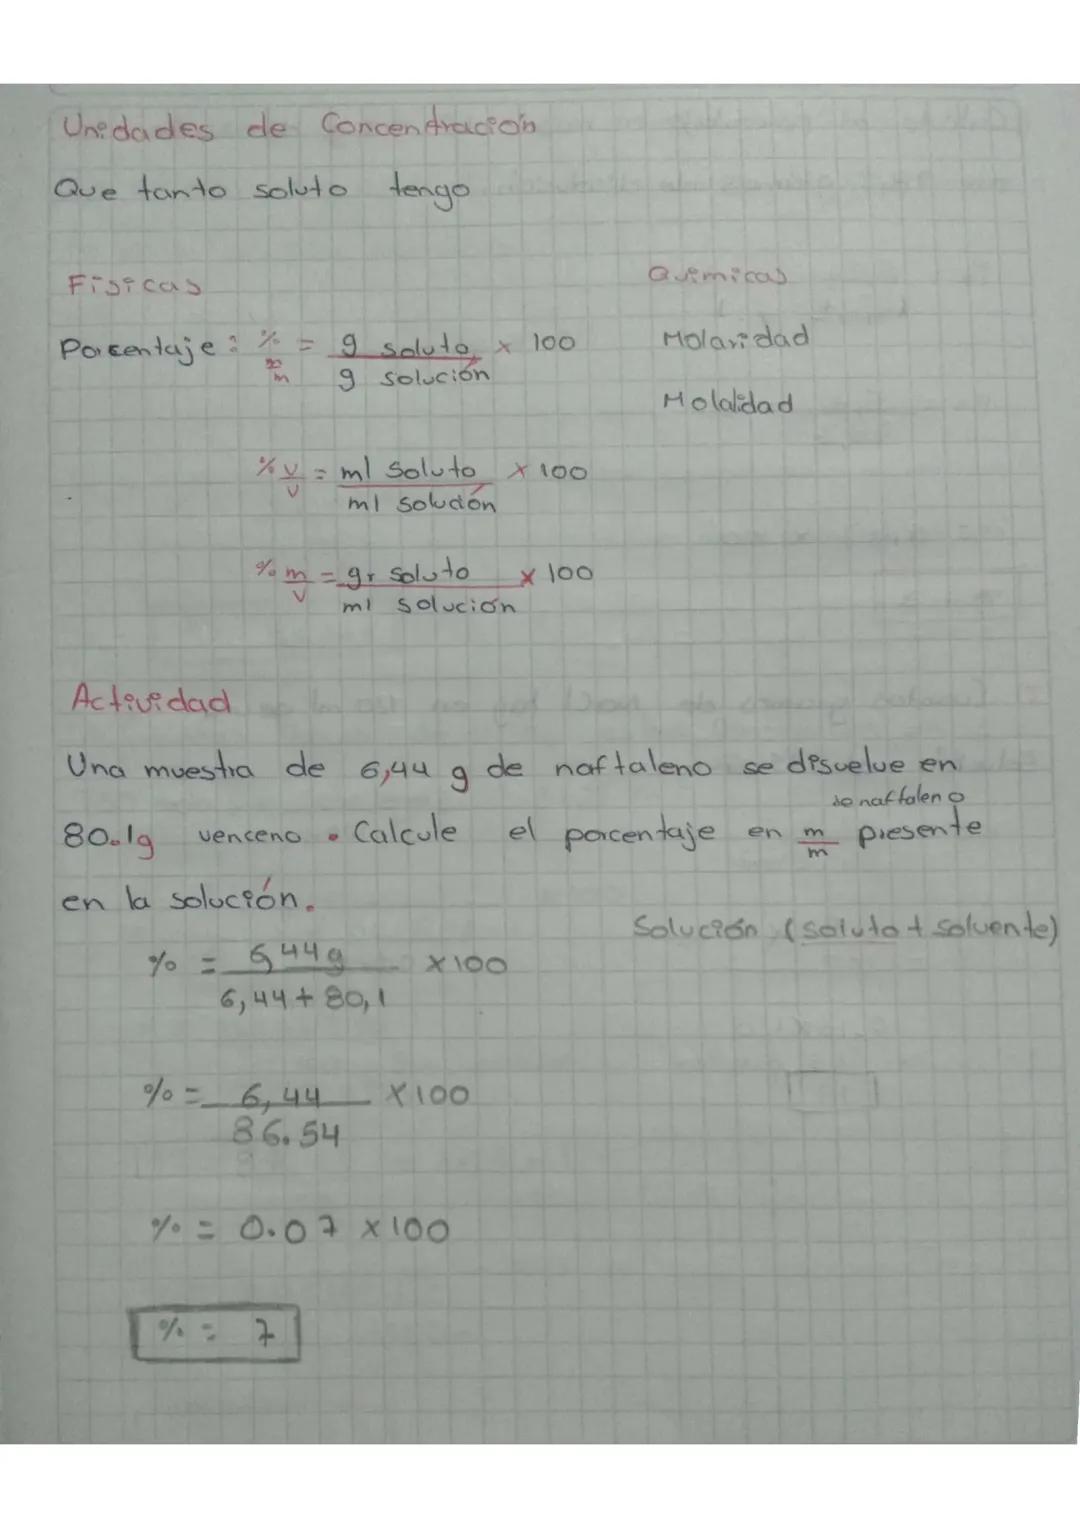 Unidades de Concentración
Que tanto soluto tengo
Físicas
Químicas
Porcentaje: % m/m = g soluto / g solución x 100
Molaridad
Molalidad
% v/v = ml soluto / ml solución x 100
% m/v = gr soluto / ml solución x 100
Actividad
Una muestra de 6,44 g de naftaleno se disuelve en
de naftaleno
80.1g venceno. Calcule el porcentaje en m/m presente
en la solución.
Solución (soluto + solvente)
% = 6,44g / 6,44 + 80,1 x 100
% = 6,44 / 86.54 x 100
% = 0.07 x 100
% = 7